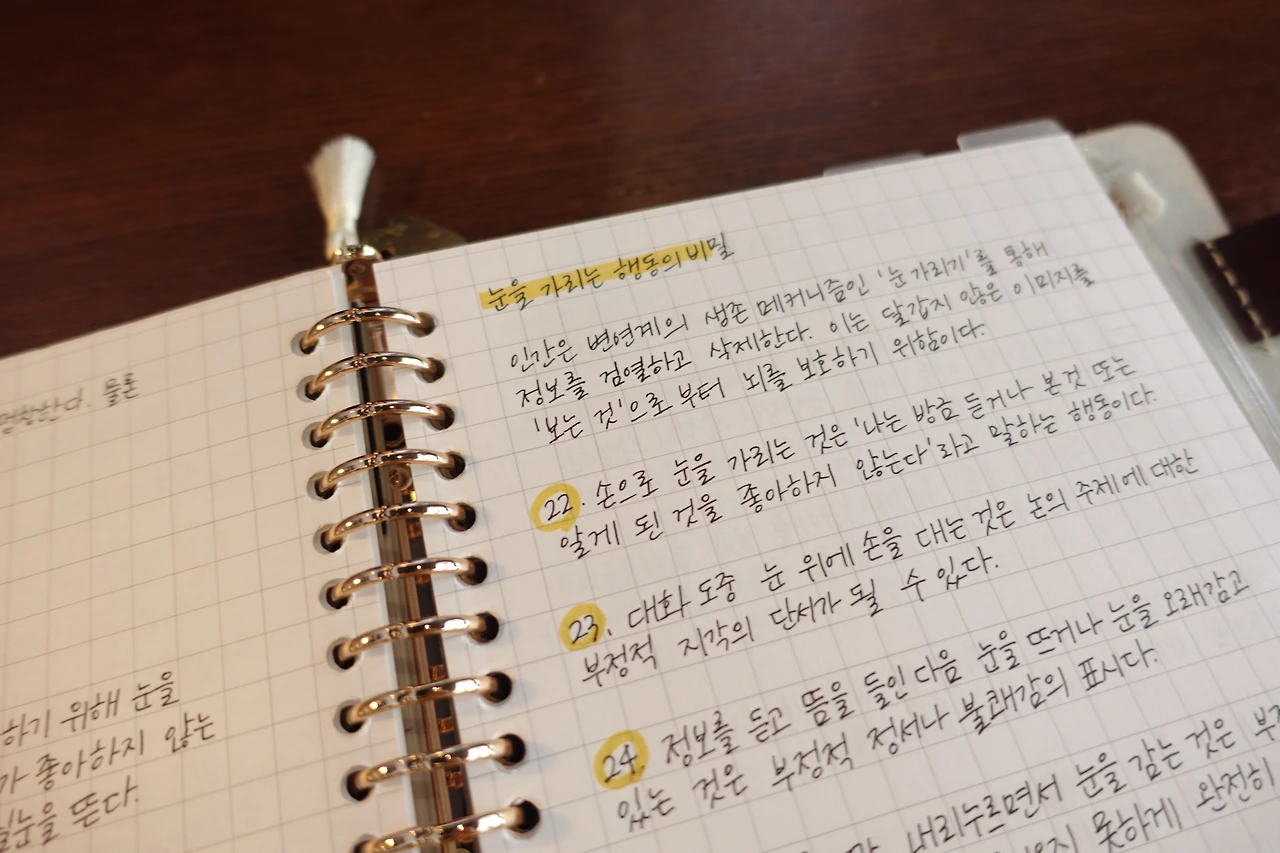 명상한다. 물론
하기 위해 눈을
가 좋아하지 않는
실눈을 뜬다.
눈을 가리는 행동의 비밀
인간은 변연계의 생존 메커니즘인 '눈 가리기'를 통해
정보를 검열하고 삭제한다. 이는 달갑지 않은 이미지를
'보는 것'으로부터 뇌를 보호하기 위함이다.
22. 손으로 눈을 가리는 것은 '나는 방금 듣거나 본 것 또는
알게 된 것을 좋아하지 않는다'라고 말하는 행동이다.
23. 대화 도중 눈 위에 손을 대는 것은 논의 주제에 대한
부정적 지각의 단서가 될 수 있다.
24. 정보를 듣고 뜸을 들인 다음 눈을 뜨거나 눈을 오래감고
있는 것은 부정적 정서나 불쾌감의 표시다.
내리누르면서 눈을 감는 것은
못하게 완전히